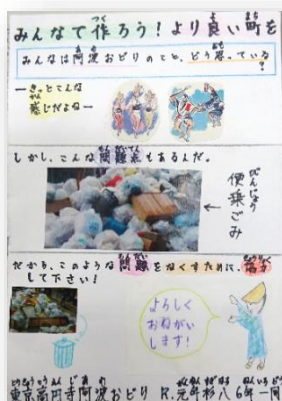 みんなで作ろう！より良い町を
みんなは阿波おどりのこと、どう思っている？
ーきっとこんな
感じだよねー
しかし、こんな問題点もあるんだ。
← 便乗ごみ
だから、このような問題をなくすために、協力
して下さい！
よろしく
おねがい
します！
東京高円寺阿波おどり R.元年杉八6年一同